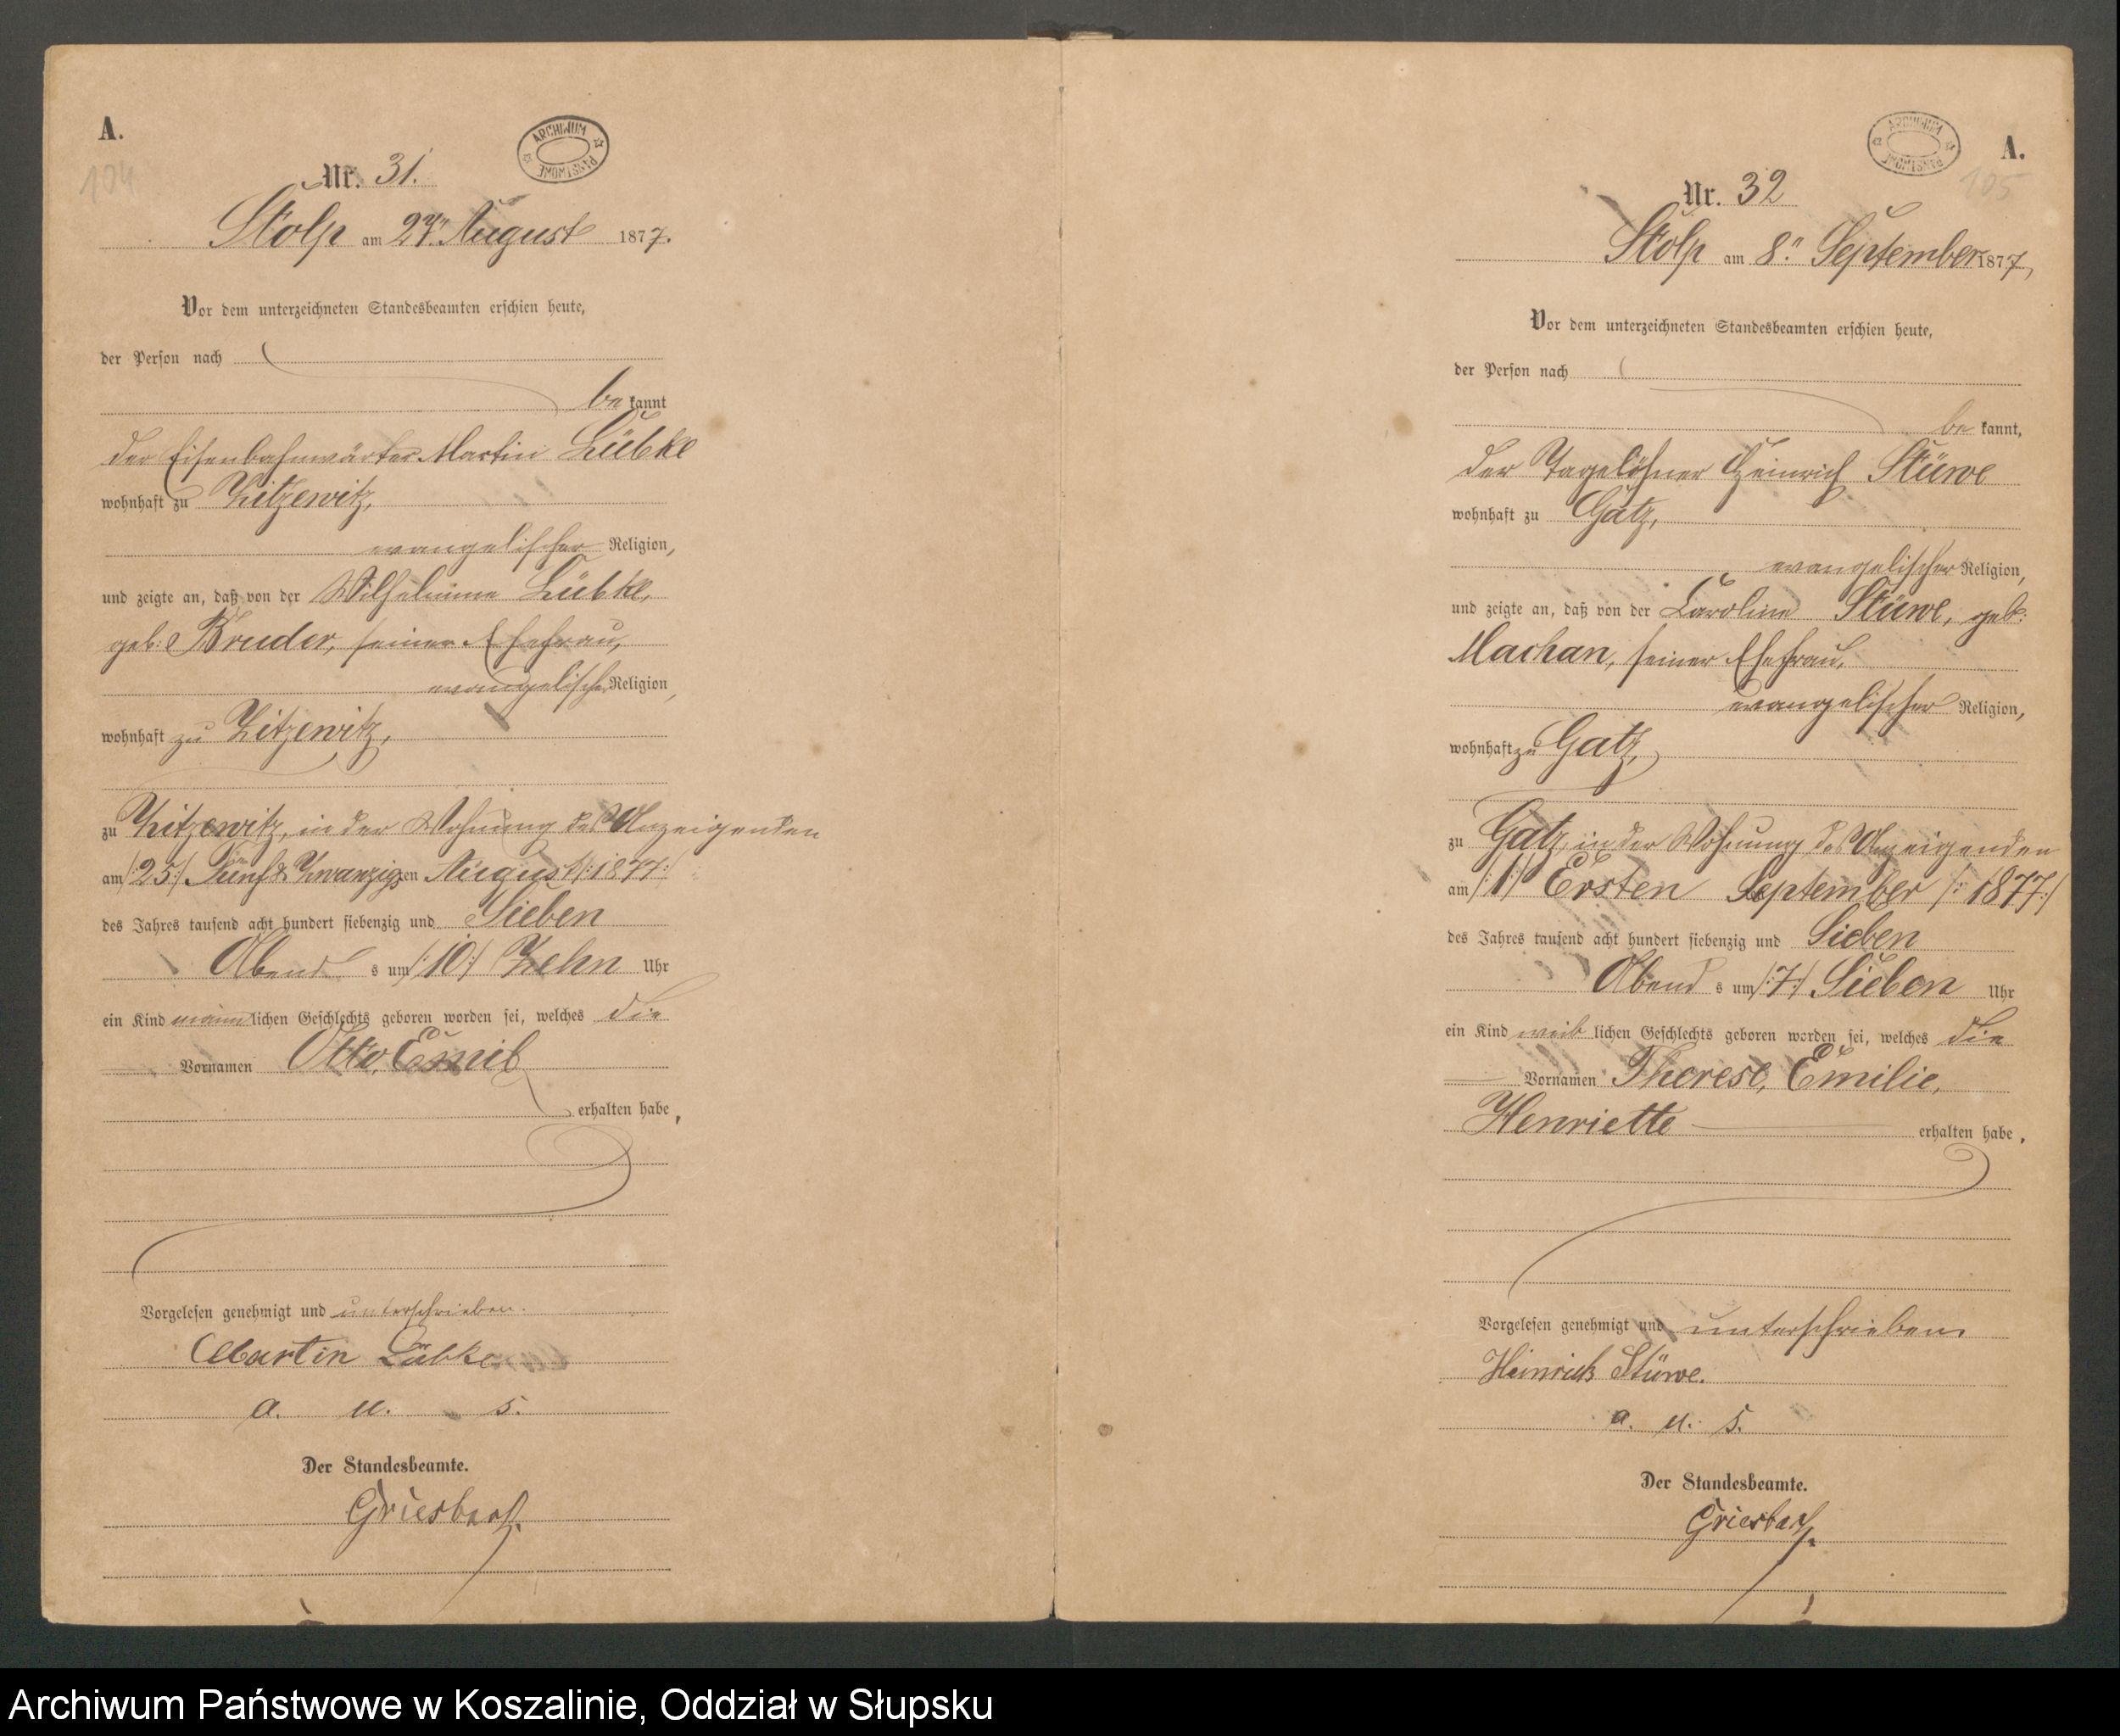 A.
104
ARCHIWUM PAŃSTWOWE
Nr. 31.
Stolp am 27. August 1877.
Vor dem unterzeichneten Standesbeamten erschien heute,
der Person nach
be kannt
der Eisenbahnwärter Martin Lübke
wohnhaft zu Zitzewitz,
evangelischer Religion,
und zeigte an, daß von der Wilhelmine Lübke,
geb: Bruder, seiner Ehefrau,
evangelischer Religion,
wohnhaft zu Zitzewitz,
zu Zitzewitz, in der Wohnung des Anzeigenden
am /:25:/ Fünf & Zwanzigsten August /:1877:/
des Jahres tausend acht hundert siebenzig und Sieben
Abend s um /:10:/ Zehn Uhr
ein Kind männlichen Geschlechts geboren worden sei, welches die
Vornamen Otto, Emil
erhalten habe,
Vorgelesen genehmigt und unterschrieben.
Martin Lübke
a. u. s.
Der Standesbeamte.
Griesbach.
ARCHIWUM PAŃSTWOWE
A.
105
Nr. 32
Stolp am 8. September 1877,
Vor dem unterzeichneten Standesbeamten erschien heute,
der Person nach
be kannt,
der Tagelöhner Heinrich Stüwe
wohnhaft zu Gatz,
evangelischer Religion,
und zeigte an, daß von der Caroline Stüwe, geb:
Machan, seiner Ehefrau,
evangelischer Religion,
wohnhaft zu Gatz,
zu Gatz, in der Wohnung des Anzeigenden
am /:1:/ Ersten September /:1877:/
des Jahres tausend acht hundert siebenzig und Sieben
Abend s um /:7:/ Sieben Uhr
ein Kind weib lichen Geschlechts geboren worden sei, welches die
Vornamen Therese, Emilie,
Henriette erhalten habe,
Vorgelesen genehmigt und unterschrieben
Heinrich Stüwe.
a. u. s.
Der Standesbeamte.
Griesbach.
Archiwum Państwowe w Koszalinie, Oddział w Słupsku